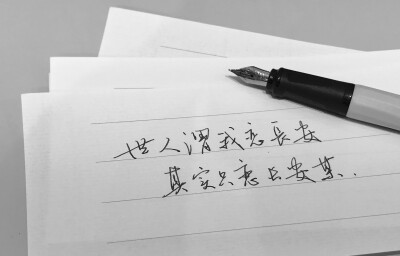 世人谓我恋長安
其实只恋长安某..